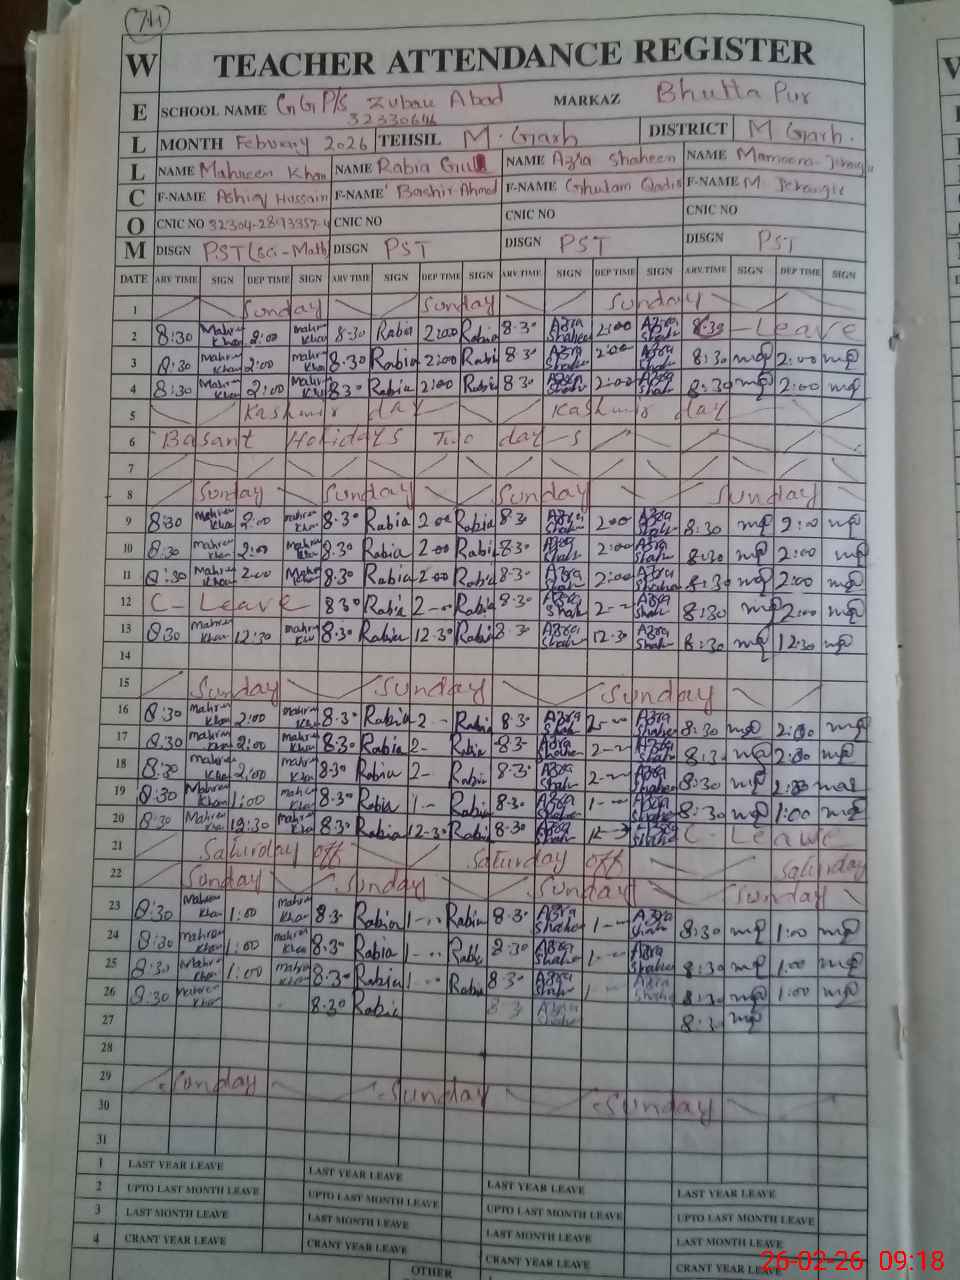 74
WELCOM
TEACHER ATTENDANCE REGISTER
SCHOOL NAME GGP/S Zubau Abad MARKAZ Bhutta Pur
32330646
MONTH February 2026 TEHSIL M. Garh DISTRICT M Garh.
NAME Mahreen Khan NAME Rabia NAME Azra Shaheen NAME
F-NAME Ashiq Hussain F-NAME Bashir Ahmad F-NAME Ghulam Qadir F-NAME M.
CNIC NO CNIC NO CNIC NO CNIC NO
DISGN PST (Sci-Math) DISGN PST DISGN PST DISGN PST
DATE ARV TIME SIGN DEP TIME SIGN ARV TIME SIGN DEP TIME SIGN ARV TIME SIGN DEP TIME SIGN ARV TIME SIGN DEP TIME SIGN
1 Sunday Sunday Sunday
2 8:30 Mahreen Khan 2:00 Mahreen Khan 8-30 Rabia 2:00 Rabia 8-30 Azra Shaheen 2:00 Azra Shah 8:30 - Leave
3 8:30 Mahreen Khan 2:00 Mahreen Khan 8-30 Rabia 2:00 Rabia 8 30 Azra Shaheen 2:00 Azra Shah 8:30 2:00
4 8:30 Mahreen Khan 2:00 Mahreen Khan 8 30 Rabia 2:00 Rabia 8 30 Azra Shah 2:00 Azra Shah 8:30 2:00
5 Kashmir day Kashmir day
6 Basant Holidays Two day-s
7
8 Sunday Sunday Sunday Sunday
9 8:30 Mahreen Khan 2:00 Mahreen Khan 8-30 Rabia 2 00 Rabia 8 30 Azra Shah 2:00 Azra Shah 8:30 2:00
10 8:30 Mahreen Khan 2:00 Mahreen Khan 8-30 Rabia 2-00 Rabia 8-30 Azra Shah 2:00 Azra Shah 8:30 2:00
11 8:30 Mahreen Khan 2:00 8-30 Rabia 2-00 Rabia 8-30 Azra Shah 2:00 Azra Shaheen 8:30 2:00
12 C- Leave 8 30 Rabia 2-- Rabia 8-30 Azra Shah 2-- Azra Shaheen 8:30 2:00
13 8:30 Mahreen Khan 12:30 Mahreen Khan 8-30 Rabia 12-30 Rabia 8-30 Azra Shah 12-30 Azra Shah 8:30 12:30
14
15 Sunday Sunday Sunday
16 8:30 Mahreen Khan 2:00 Mahreen Khan 8-30 Rabia 2-- Rabia 8-30 Azra Shah 2-- Azra Shaheen 8:30 2:00
17 8:30 Mahreen Khan 2:00 Mahreen Khan 8-30 Rabia 2- Rabia 8-30 Azra Shaheen 2-- Azra Shaheen 8:30 2:00
18 8:30 Mahreen Khan 2:00 Mahreen Khan 8-30 Rabia 2- Rabia 8-30 Azra Shah 2-- Azra Shaheen 8:30 2:00
19 8:30 Mahreen Khan 1:00 Mahreen Khan 8-30 Rabia 1-- Rabia 8-30 Azra Shah 1-- Azra Shaheen 8:30 1:00
20 8:30 Mahreen Khan 12:30 Mahreen Khan 8-30 Rabia 12-30 Rabia 8-30 Azra Shah C- Leave
21 Saturday off Saturday off Saturday
22 Sunday Sunday Sunday Sunday
23 8:30 Mahreen Khan 1:00 Mahreen Khan 8-30 Rabia 1-- Rabia 8-30 Azra Shaheen 1-- Azra Shah 8:30 1:00
24 8:30 Mahreen Khan 1:00 Mahreen Khan 8-30 Rabia 1-- 8-30 Azra Shaheen 1-- Azra Shaheen 8:30 1:00
25 8:30 Mahreen Khan 1:00 Mahreen Khan 8-30 Rabia 1-- Rabia 8-30 Azra Shah 1-- Azra Shaheen 8:30 1:00
26 8:30 Mahreen Khan 8-30 Rabia 8-30 Azra Shah 8:30
27
28
29 Sunday Sunday Sunday
30
31
1 LAST YEAR LEAVE LAST YEAR LEAVE LAST YEAR LEAVE LAST YEAR LEAVE
2 UPTO LAST MONTH LEAVE UPTO LAST MONTH LEAVE UPTO LAST MONTH LEAVE UPTO LAST MONTH LEAVE
3 LAST MONTH LEAVE LAST MONTH LEAVE LAST MONTH LEAVE LAST MONTH LEAVE
4 CRANT YEAR LEAVE CRANT YEAR LEAVE CRANT YEAR LEAVE CRANT YEAR LEAVE
OTHER
26-02-26 09:18